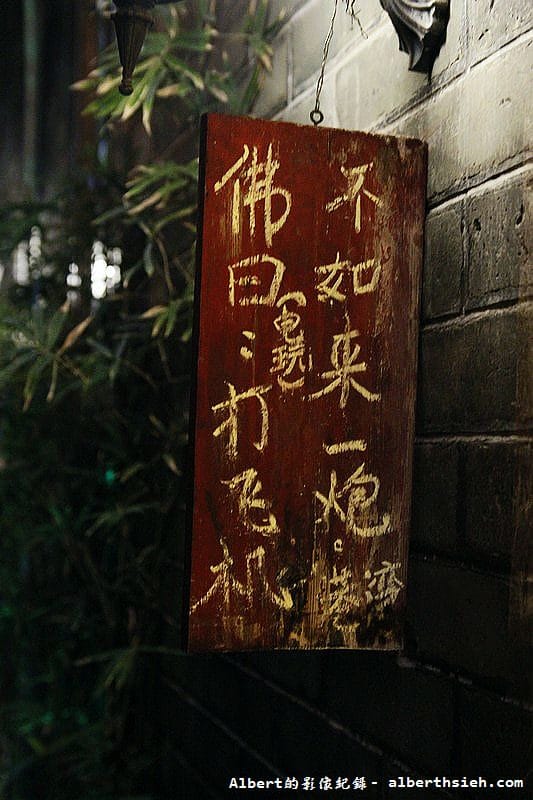 佛曰：打飞机
（电玩）
不如来一炮。
湾
Albert的影像紀錄 - alberthsieh.com